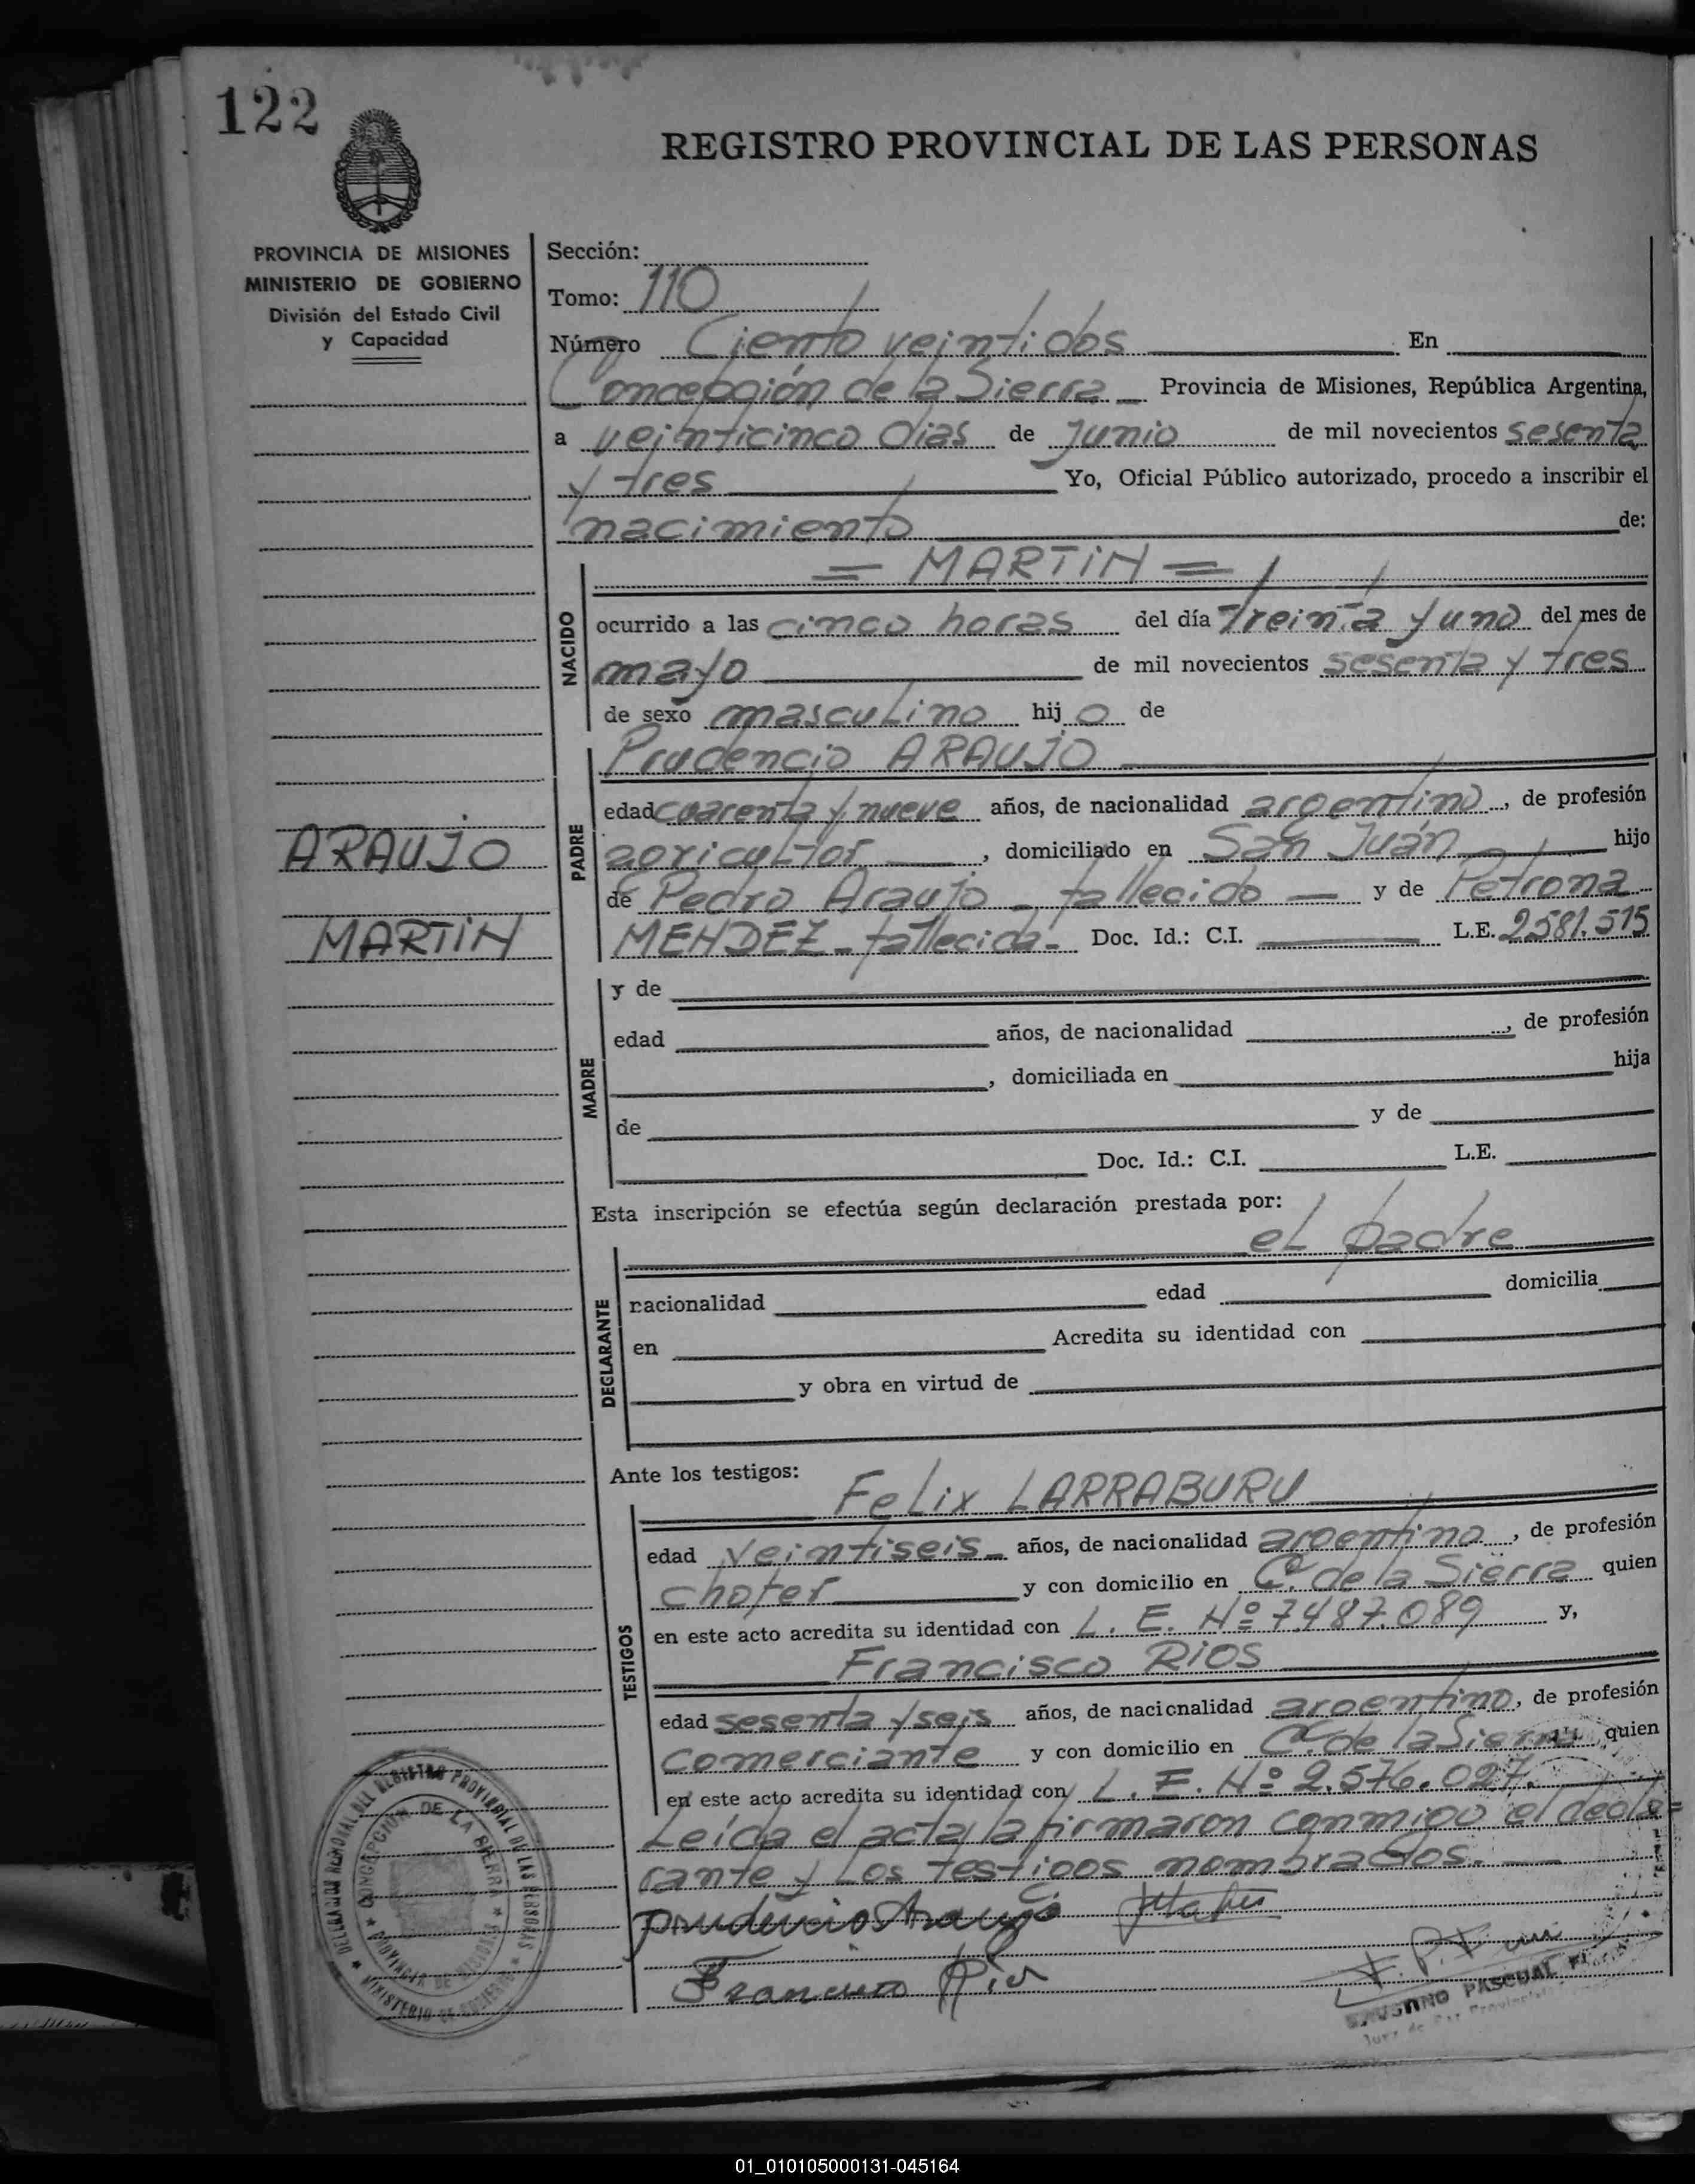 122
REGISTRO PROVINCIAL DE LAS PERSONAS
PROVINCIA DE MISIONES
MINISTERIO DE GOBIERNO
División del Estado Civil
y Capacidad
Sección:
Tomo: 110
Número Ciento veintidos En
Concepción de la Sierra Provincia de Misiones, República Argentina,
a veinticinco dias de Junio de mil novecientos sesenta
y tres Yo, Oficial Público autorizado, procedo a inscribir el
nacimiento de:
NACIDO
= MARTIN =
ocurrido a las cinco horas del día treinta y uno del mes de
mayo de mil novecientos sesenta y tres
de sexo masculino hijo de
PADRE
Prudencio ARAUJO
edad cuarenta y nueve años, de nacionalidad argentino, de profesión
agricultor, domiciliado en San Juán hijo
de Pedro Araujo - fallecido - y de Petrona
MENDEZ - fallecida - Doc. Id.: C.I. L.E. 2581.515
ARAUJO
MARTIN
MADRE
y de
edad años, de nacionalidad , de profesión
, domiciliada en hija
de y de
Doc. Id.: C.I. L.E.
Esta inscripción se efectúa según declaración prestada por:
el padre
DECLARANTE
nacionalidad edad domicilia
en Acredita su identidad con
y obra en virtud de
Ante los testigos:
TESTIGOS
Felix LARRABURU
edad veintiseis - años, de nacionalidad argentino, de profesión
chofer y con domicilio en C. de la Sierra quien
en este acto acredita su identidad con L. E. Nº 7.487.089 y,
Francisco RIOS
edad sesenta y seis años, de nacionalidad argentino, de profesión
comerciante y con domicilio en C. de la Sierra quien
en este acto acredita su identidad con L. E. Nº 2.576.027.
Leída el acta, la firmaron conmigo el decla=
rante y los testigos nombrados.
prudencio Araujo
Francisco Rios
DELEGACION REGIONAL DEL REGISTRO PROVINCIAL DE LAS PERSONAS
MINISTERIO DE GOBIERNO
CONCEPCION DE LA SIERRA
PROVINCIA DE MISIONES
PASCUAL
01_010105000131-045164